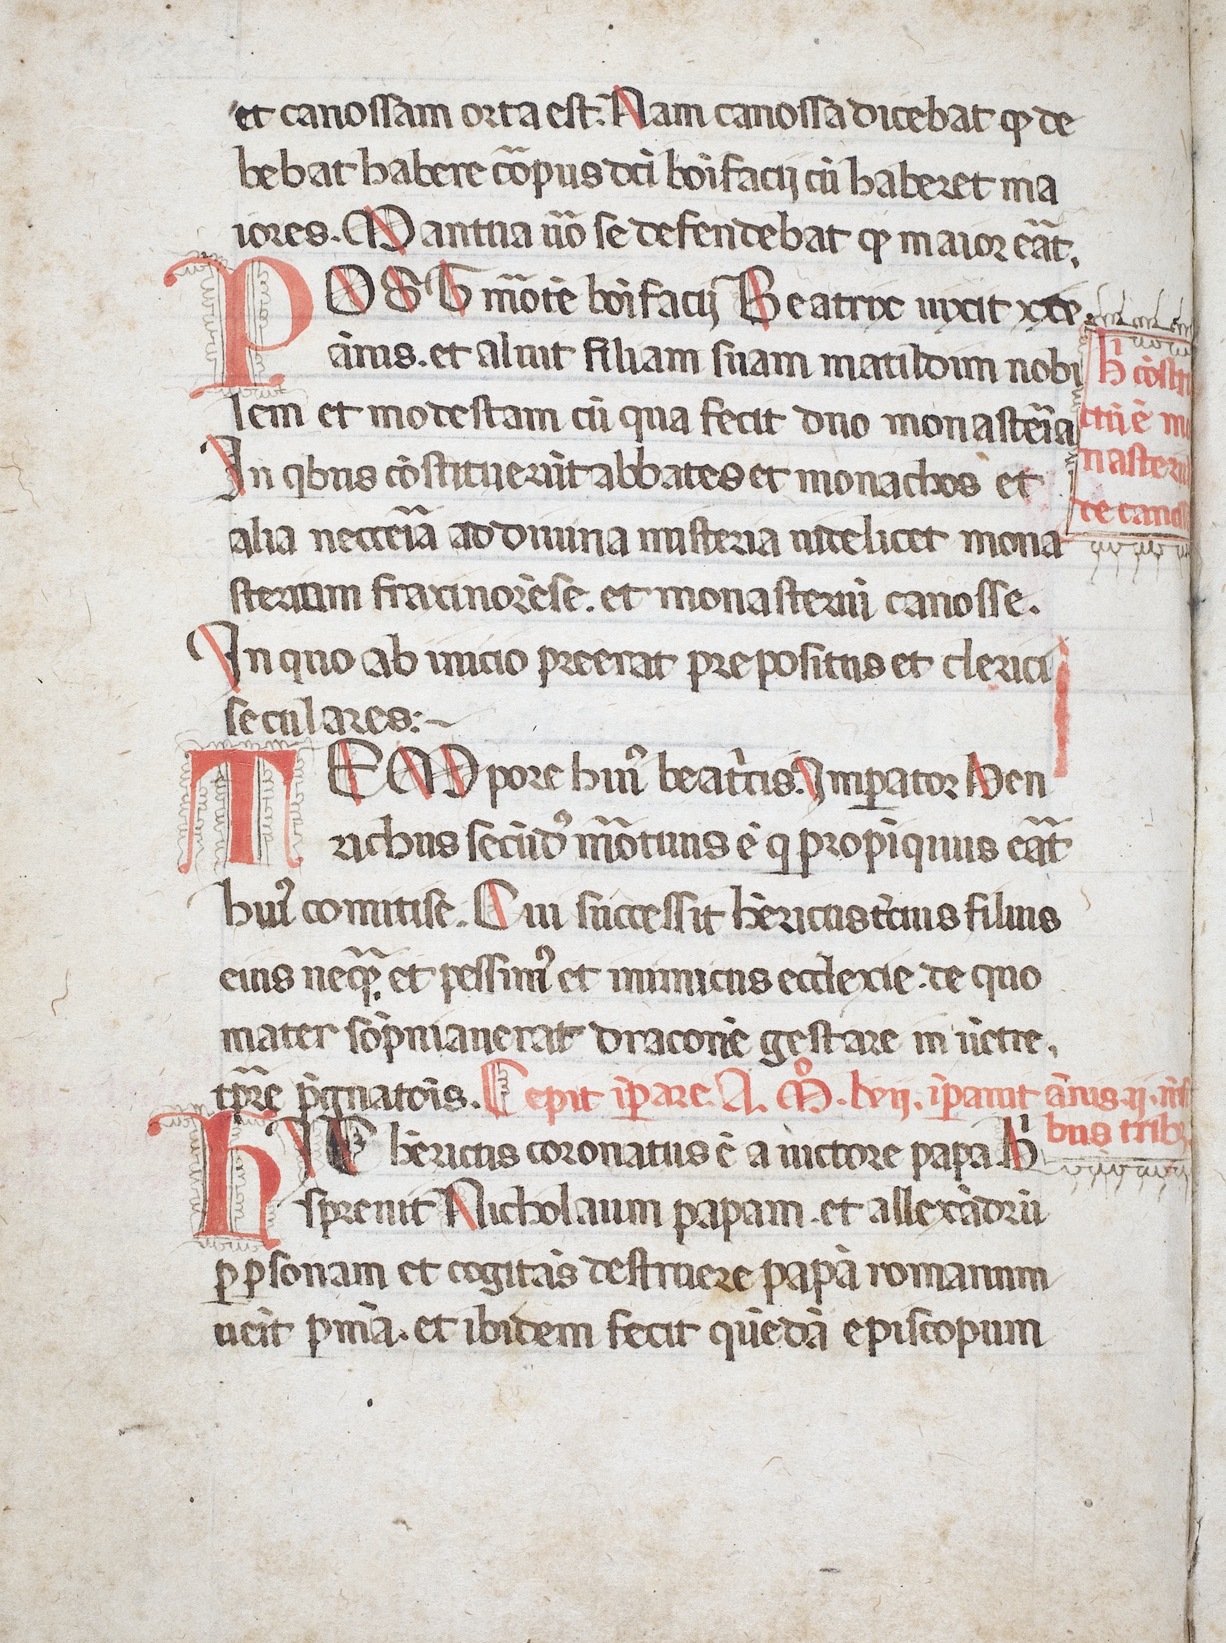 et canossam orta est. Nam canossa dicebat qͥ de
bebat habere cōpus dc̄i boīfacij cū haberet ma
iores. Mantua ū̄o se defendebat qͥ maior eāt.
POST m̄otē boīfacij Beatrix uixit xxe
ānis. et aluit filiam suam matildim nobi
lem et modestam cū qua fecit duo monastēia
In qbus cōstituerūt abbates et monachos et
alia necceīa ad diuina misteria uidelicet mona
sterium fraxinorēse. et monasteriū canosse.
In quo ab inicio preerat prepositus et clerici
seculares:~
h̄ cōstru
ctū ē mo
nasteriū
de canos
TEMpore huiꝰ beat̄cis. Imꝑator Hen
richus secūdꝰ m̄otuus ē q propīquus eāt
huiꝰ comitise. Cui successit hēricus t̄cius filius
eius neqͣ̄. et pessimꝰ et inimicus ecclexie. de quo
mater sōpniauerat draconē gestare in uētre.
tp̄re p̄gnatōis. Cepit īꝑare. A. M̊. lvij. īꝑauit ānis. ij. m̄si
bus tribꝫ
HIC hēricus coronatus ē a uictore papa. h̄
spreuit Nicholaum papam. et allexādrū
ꝑ ꝑsonam et cogitās destruere papā romanum
ueīt ꝑmā. et ibidem fecit quēdā episcopum